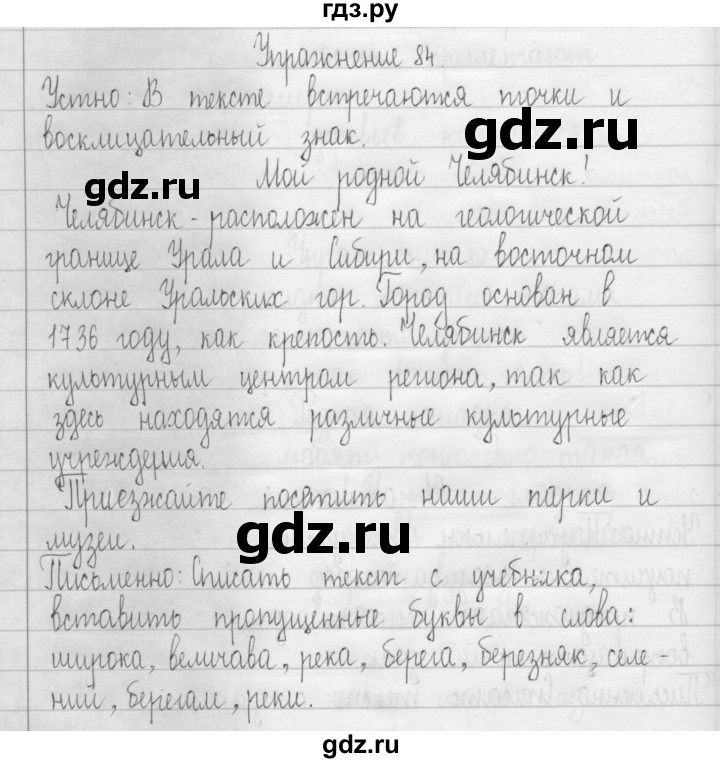 гдз.ру
Упражнение 84
Устно: В тексте встречаются точки и
восклицательный знак.
gdz.ru
gdz.ru
Мой родной Челябинск!
Челябинск - расположен на геологической
границе Урала и Сибири, на восточном
склоне Уральских гор. Город основан в
1736 году, как крепость. Челябинск является
культурным центром региона, так как
здесь находятся различные культурные
учреждения.
Приезжайте посетить наши парки и
музеи.
gdz.ru
Письменно: Списать текст с учебника,
вставить пропущенные буквы в слова:
широка, величава, река, берега, березняк, селе-
ний, берегам, реки.
gdz.ru